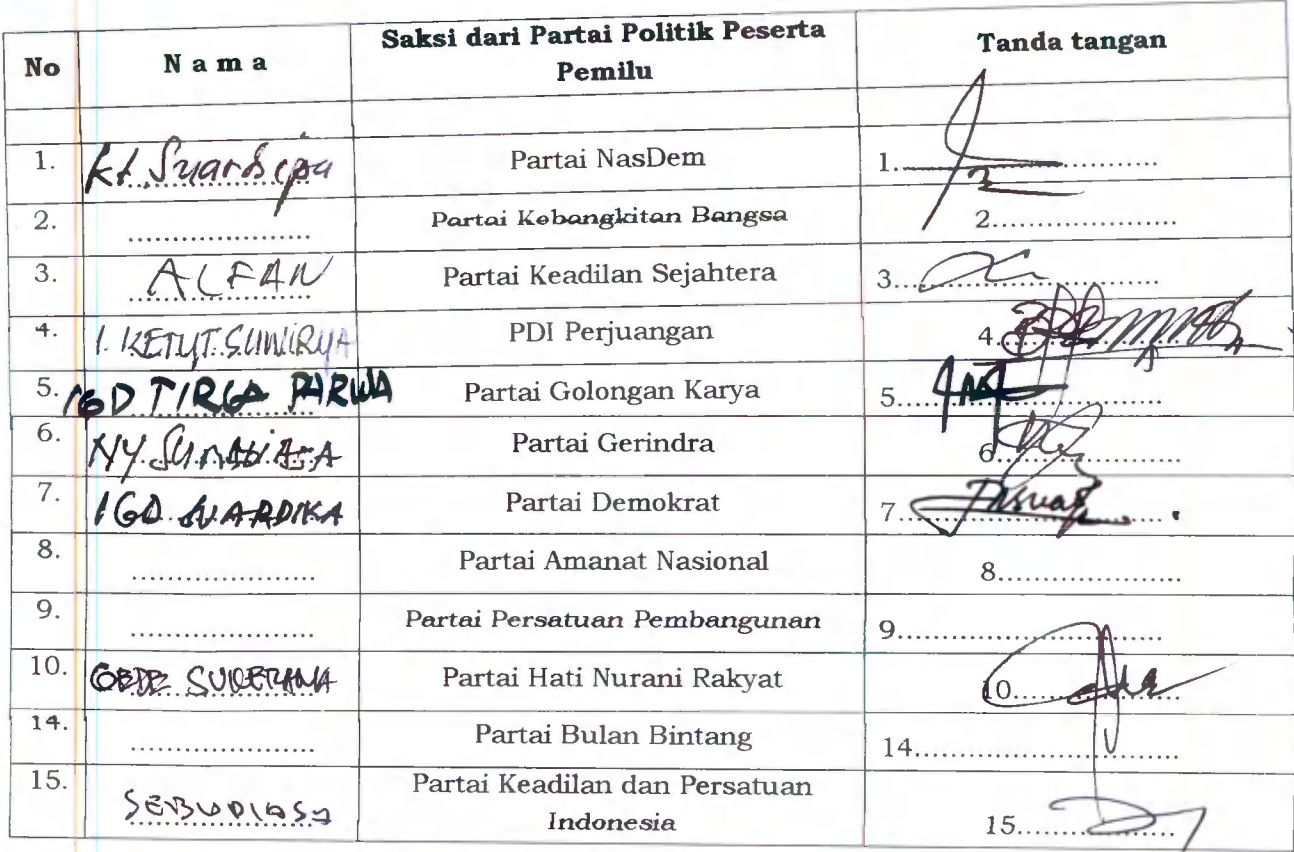 No N a m a Saksi dari Partai Politik Peserta Pemilu Tanda tangan
1. Kt. Suardipa Partai NasDem 1.....................
2. ..................... Partai Kebangkitan Bangsa 2.....................
3. ALFAN Partai Keadilan Sejahtera 3.....................
4. I. KETUT. SUWIRYA PDI Perjuangan 4.....................
5. IGD TIRGA PARWA Partai Golongan Karya 5.....................
6. NY. Partai Gerindra 6.....................
7. IGD. SUARDIKA Partai Demokrat 7.....................
8. ..................... Partai Amanat Nasional 8.....................
9. ..................... Partai Persatuan Pembangunan 9.....................
10. GEDE Partai Hati Nurani Rakyat 10.....................
14. ..................... Partai Bulan Bintang 14.....................
15. Partai Keadilan dan Persatuan Indonesia 15.....................